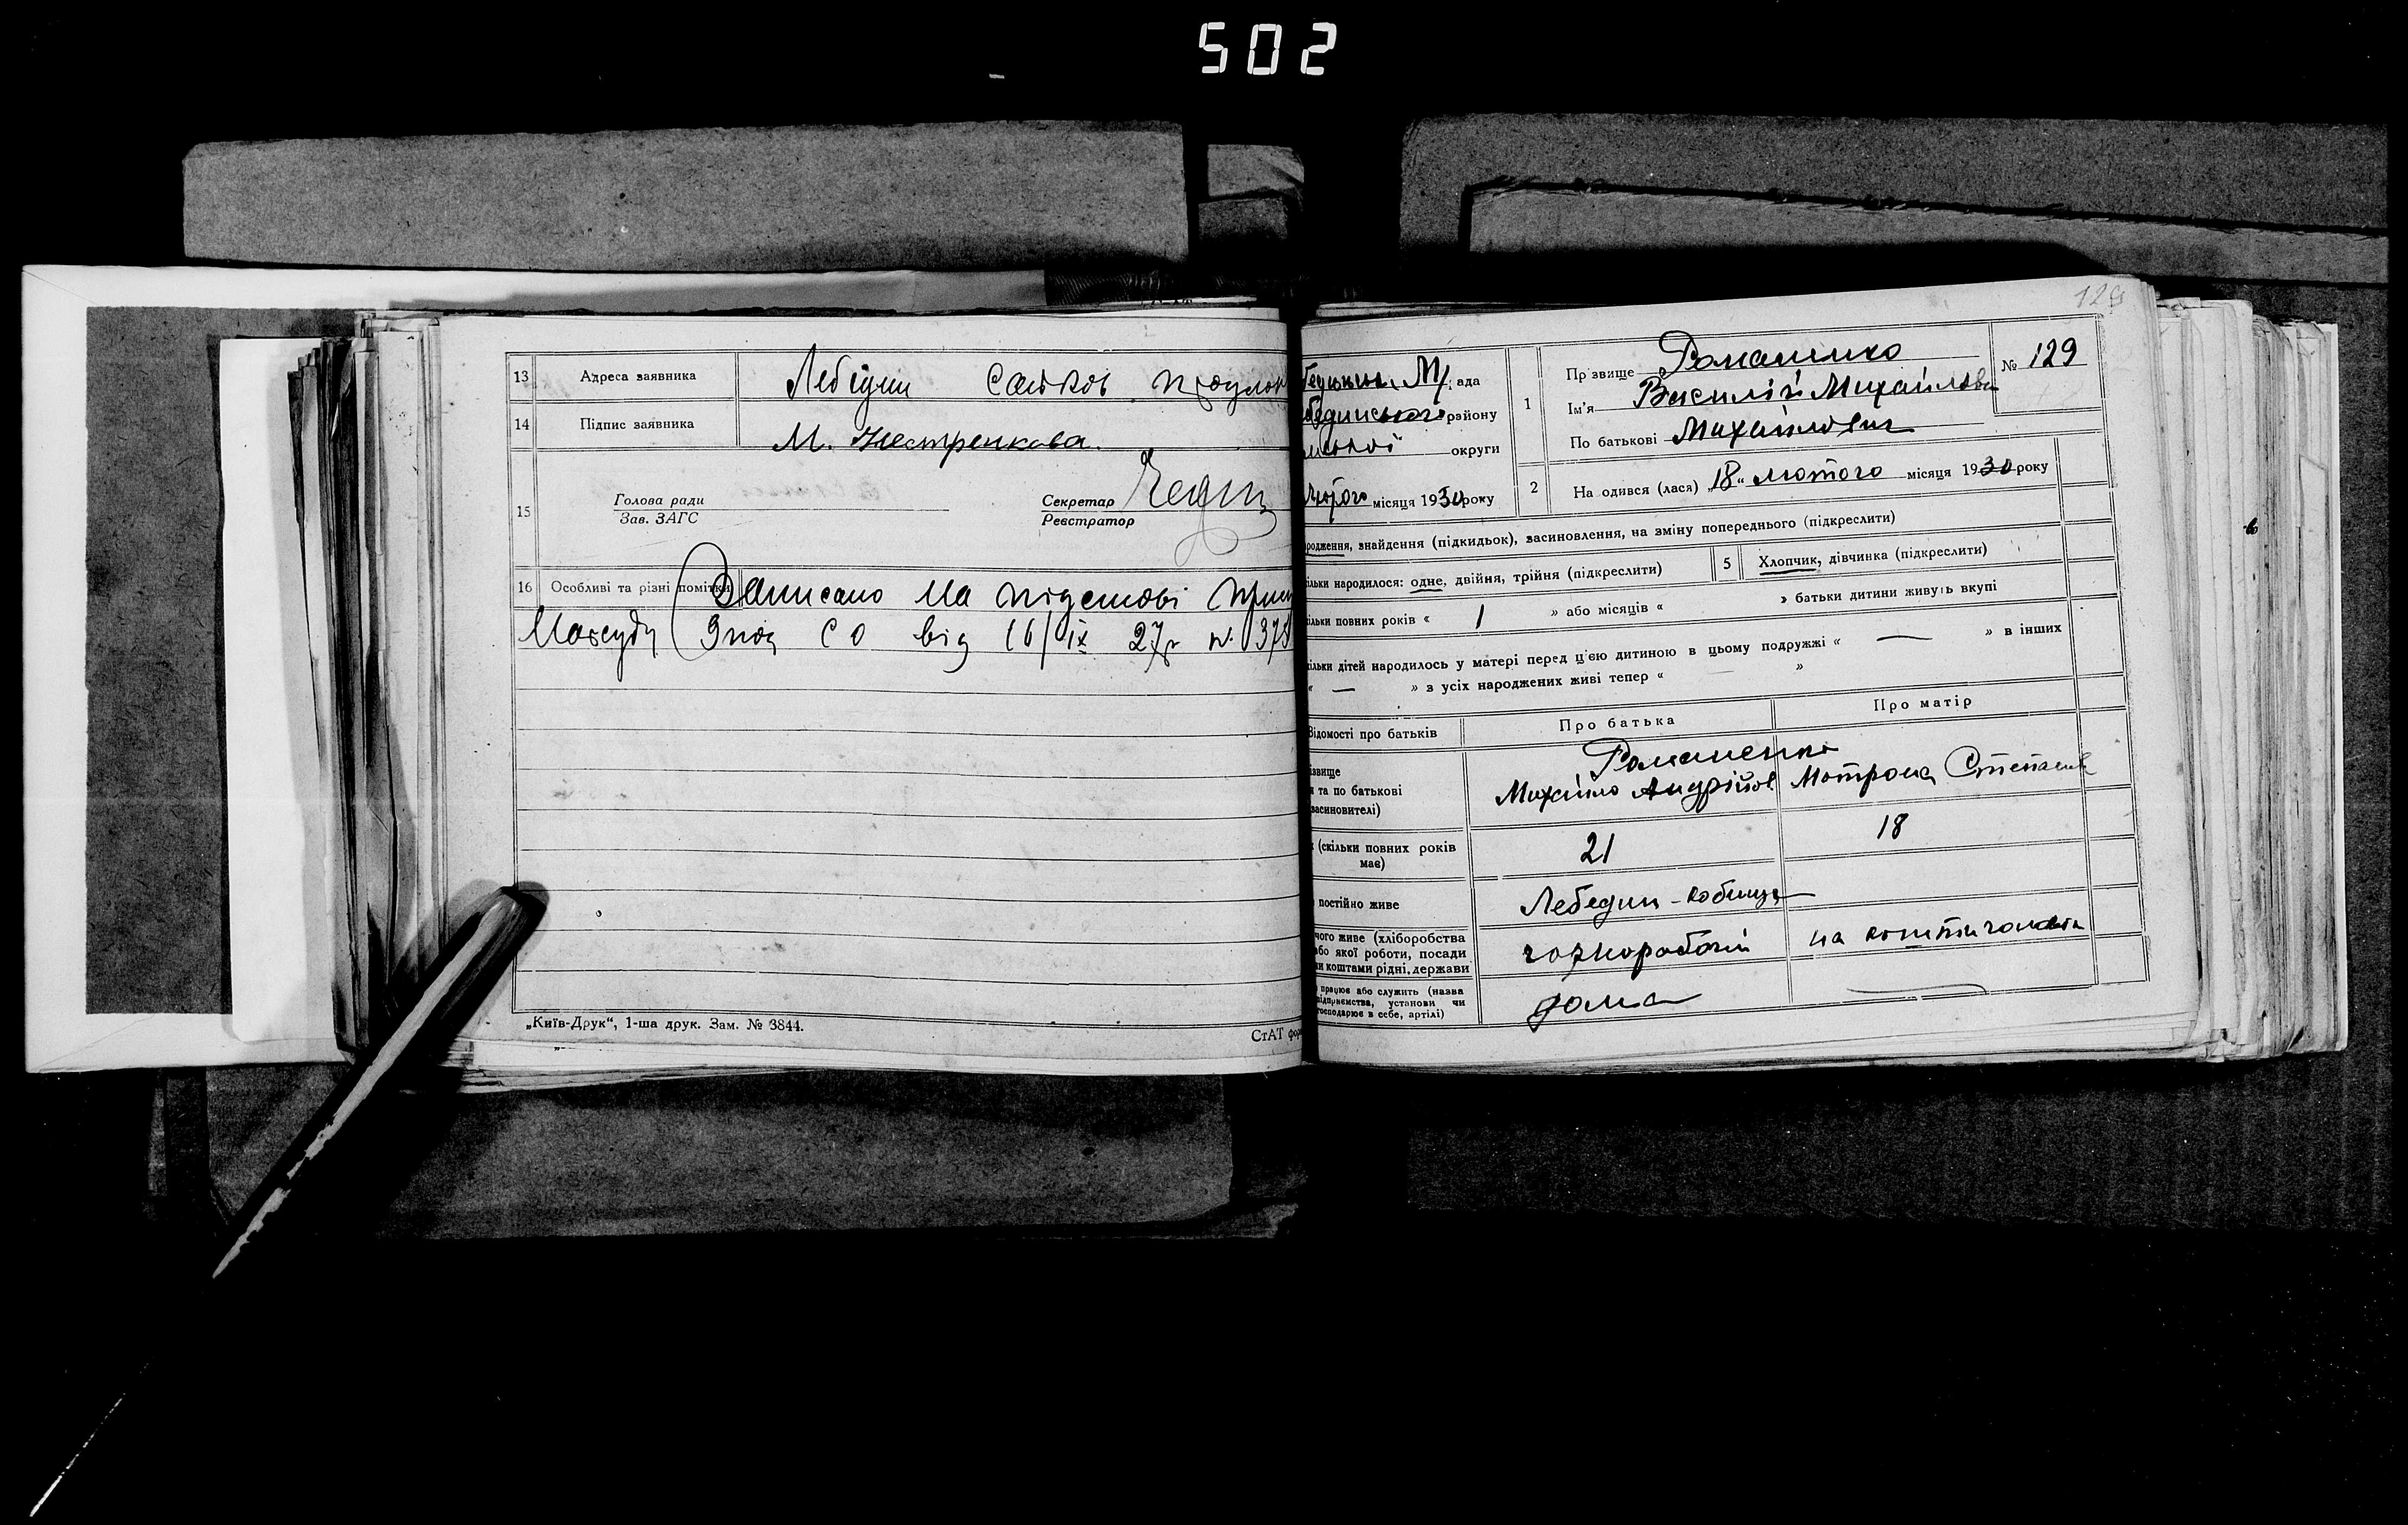 502
13 Адреса заявника Лебедин
14 Підпис заявника М. Нестренкова.
15 Голова ради
Зав. ЗАГС
Секретар
Реєстратор
16 Особливі та різні помітки Записано на підставі
від 16/IX 27р № 378
„Київ-Друк“, 1-ша друк. Зам. № 3844.
СтАТ
129
ада
району
округи
місяця 1930 року
1 Прізвище Романенко № 129
Ім'я Василій Михайлов
По батькові Михайлович
2 На одився (лася) „18“ лютого місяця 1930 року
родження, знайдення (підкидьок), засиновлення, на зміну попереднього (підкреслити)
ільки народилося: одне, двійня, трійня (підкреслити) 5 Хлопчик, дівчинка (підкреслити)
ільки повних років « 1 » або місяців « » батьки дитини живуть вкупі
ільки дітей народилось у матері перед ц'єю дитиною в цьому подружжі « — » в інших
« — » з усіх народжених живі тепер « »
Відомості про батьків Про батька Про матір
ізвище
та по батькові
засиновителі)
Романенко
Михайло Андрійов Мотрона Степанів
(скільки повних років
має)
21 18
постійно живе Лебедин - кобища
чого живе (хліборобства
або якої роботи, посади
чи коштами рідні, держави
чорноробочий на кошти чоловіка
працює або служить (назва
підприємства, установи чи
господарює в себе, артілі)
дома —